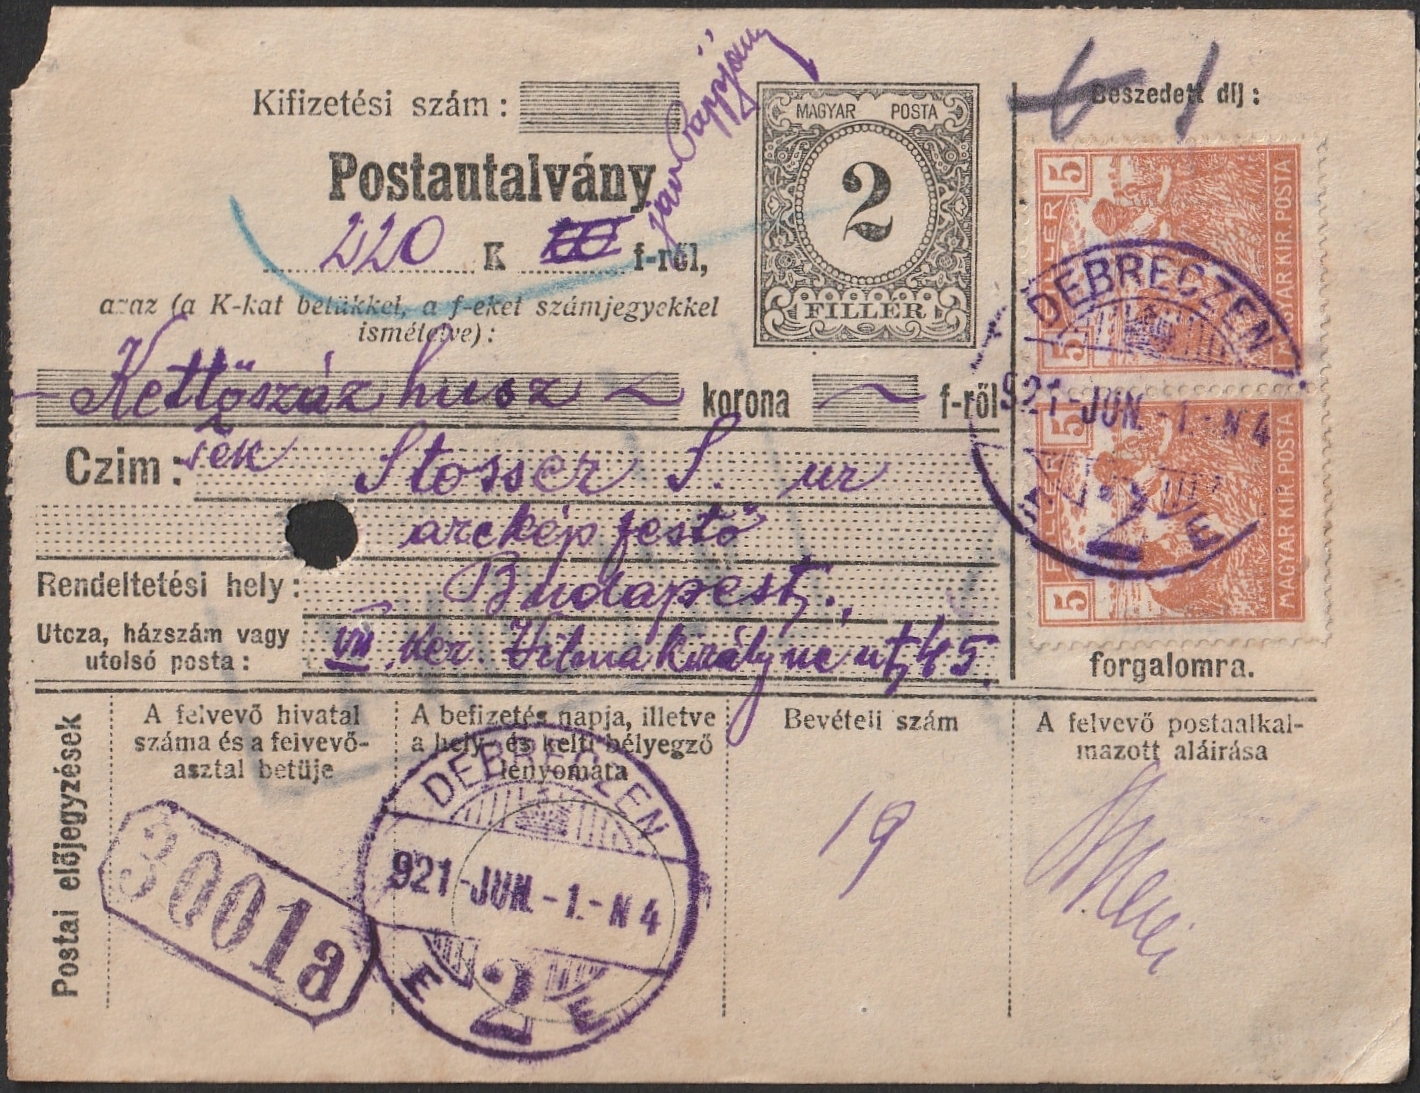 Kifizetési szám:
Postautalvány
220 K f-ről,
azaz (a K-kat betükkel, a f-eket számjegyekkel
ismételve):
Kettőszáz husz ~ korona ~ f-ről
Czim: Stosser S. ur
arckép festő
Rendeltetési hely: Budapest,
Utcza, házszám vagy
utolsó posta:
VII. ker. Vilma királyné ut 45.
MAGYAR POSTA
2
FILLÉR
Beszedett díj:
5 5
MAGYAR KIR POSTA
5 5
MAGYAR KIR POSTA
DEBRECZEN
921-JUN.-1.-N4
2
E
forgalomra.
Postai előjegyzések
A felvevő hivatal
száma és a felvevő-
asztal betüje
A befizetés napja, illetve
a hely- és kelti bélyegző
lenyomata
Bevételi szám
A felvevő postaalkal-
mazott aláirása
3001a
DEBRECZEN
921-JUN.-1.-N4
E 2 E
19